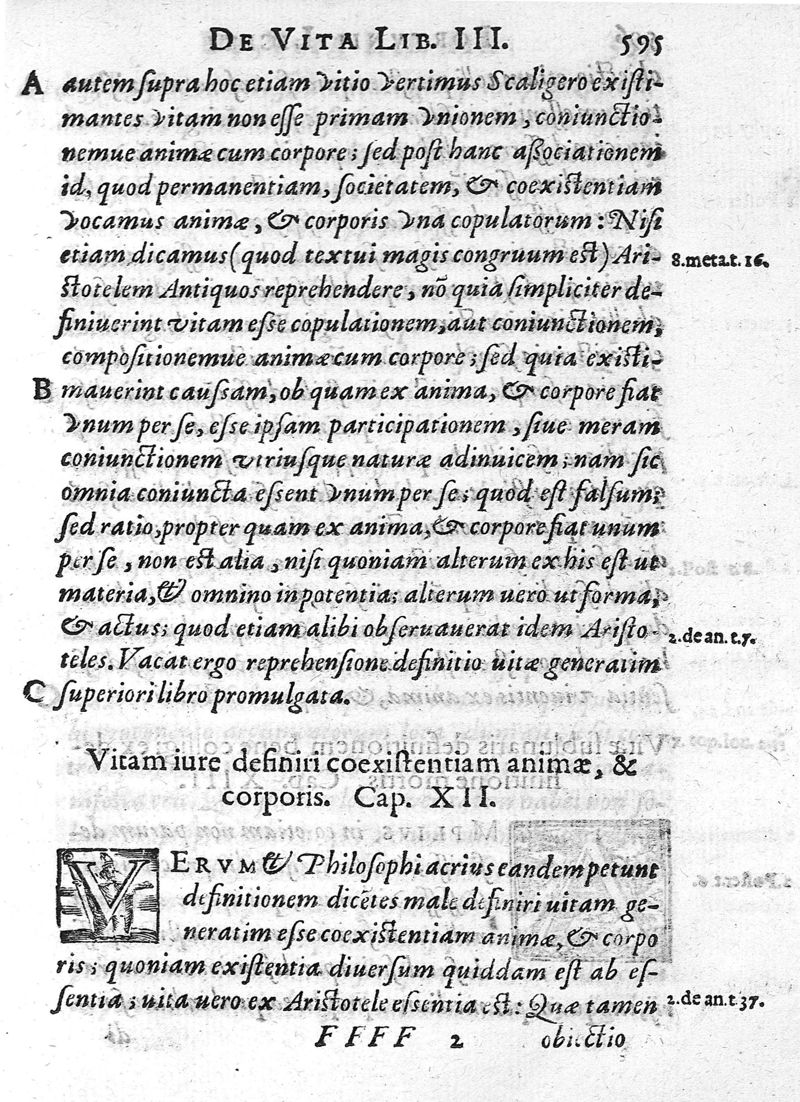 DE VITA LIB. III. 595
A autem ſupra hoc etiam vitio vertimus Scaligero exiſti-
mantes vitam non eſſe primam vnionem, coniunctio-
nemue animæ cum corpore; ſed poſt hanc aſſociationem
id, quod permanentiam, ſocietatem, & coexiſtentiam
vocamus animæ, & corporis vna copulatorum: Niſi
etiam dicamus (quod textui magis congruum eſt) Ari- 8.meta.t.16.
ſtotelem Antiquos reprehendere, nō quia ſimpliciter de-
finiuerint vitam eſse copulationem, aut coniunctionem,
compoſitionemue animæ cum corpore; ſed quia exiſti-
B mauerint cauſsam, ob quam ex anima, & corpore fiat
vnum per ſe, eſse ipſam participationem, ſiue meram
coniunctionem vtriuſque naturæ adinuicem; nam ſic
omnia coniuncta eſsent vnum per ſe; quod eſt falſum;
ſed ratio, propter quam ex anima, & corpore fiat unum
per ſe, non eſt alia, niſi quoniam alterum ex his eſt ut
materia, & omnino in potentia; alterum uerò ut forma,
& actus; quod etiam alibi obſeruauerat idem Ariſto- 2.de an.t.7.
teles. Vacat ergo reprehenſione definitio uitæ generatim
C ſuperiori libro promulgata.
Vitam iure definiri coexiſtentiam animæ, &
corporis. Cap. XII.
VERVM & Philoſophi acrius eandem petunt
definitionem dicẽtes male definiri uitam ge-
neratim eſse coexiſtentiam animæ, & corpo
ris; quoniam exiſtentia diuerſum quiddam eſt ab eſ-
ſentia; uita uero ex Ariſtotele eſsentia eſt: Quæ tamen 2.de an.t.37.
FFFF 2 obiectio